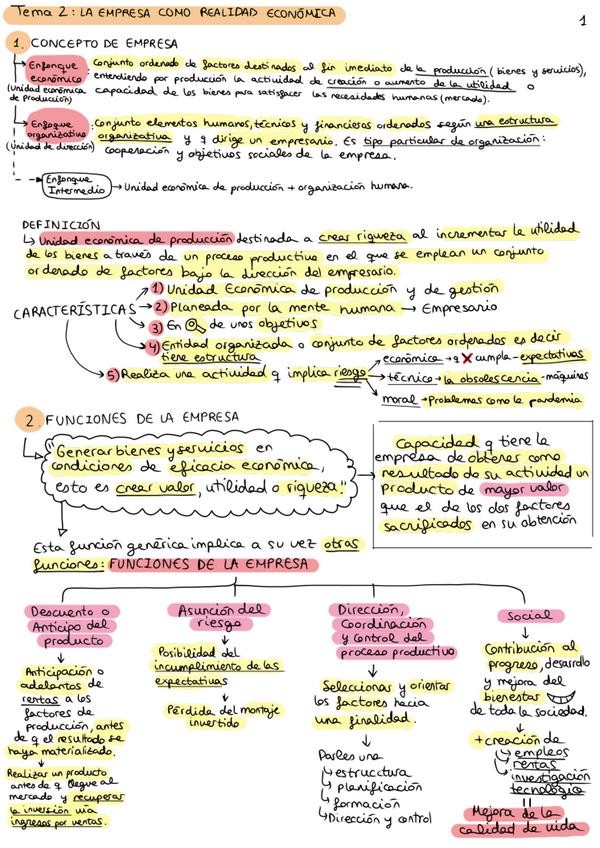 Tema 2: LA EMPRESA COMO REALIDAD ECONÓMICA
1
1. CONCEPTO DE EMPRESA
Enfonque económico: conjunto ordenado de factores destinados al fin imediato de la producción (bienes y servicios),
(Unidad económica de Producción)
entendiendo por producción la actividad de creación o aumento de la utilidad o
capacidad de los bienes para satisfacer las necesidades humanas (mercado).
Enfoque organizativo: conjunto elementos humanos, técnicos y financieros ordenados según una estructura
(Unidad de dirección)
organizativa y q dirige un empresario. Es tipo particular de organización:
cooperación y objetivos sociales de la empresa.
Enfonque Intermedio → Unidad económica de producción + organización humana.
DEFINICIÓN
↳ Unidad económica de producción destinada a crear riqueza al incrementar la utilidad
de los bienes a través de un proceso productivo en el que se emplean un conjunto
ordenado de factores bajo la dirección del empresario.
CARACTERÍSTICAS
1) Unidad Económica de producción y de gestión
2) Planeada por la mente humana → Empresario
3) En 🔍 de unos objetivos
4) Entidad organizada o conjunto de factores ordenados es decir
tiene estructura
5) Realiza una actividad q implica riesgo
económico → q X cumpla - expectativas
técnico → la obsolescencia - máquinas
moral → Problemas como la pandemia
2. FUNCIONES DE LA EMPRESA
"Generar bienes y servicios en
condiciones de eficacia económica,
esto es crear valor, utilidad o riqueza."
Capacidad q tiene la
empresa de obtener como
resultado de su actividad un
producto de mayor valor
que el de los dos factores
sacrificados en su obtención
Esta función genérica implica a su vez otras
funciones: FUNCIONES DE LA EMPRESA
Descuento o
Anticipo del
producto
Anticipación o
adelantos de
rentas a los
factores de
producción, antes
de q el resultado se
haya materializado.
Realizar un producto
antes de q llegue al
mercado y recuperar
la inversión vía
ingresos por ventas.
Asunción del
riesgo
Posibilidad del
incumplimiento de las
expectativas
Pérdida del montaje
invertido
Dirección,
Coordinación
y control del
proceso productivo
Seleccionar y orientar
los factores hacia
una finalidad.
Parles una
↳ estrucctura
↳ planificación
↳ formación
↳ Dirección y control
Social
Contribución al
progreso, desarrollo
y mejora del
bienestar
de toda la sociedad.
+ creación de
↳ empleos
↳ rentas
↳ investigación
tecnológica
Mejora de la
calidad de vida